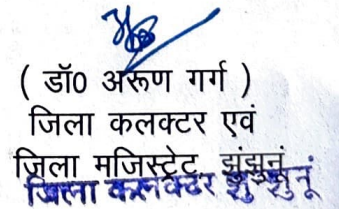 ( डॉ0 अरूण गर्ग )
जिला कलक्टर एवं
ज़िला मजिस्ट्रेट, झुंझुनूं
जिला कलक्टर झुंझुनूं